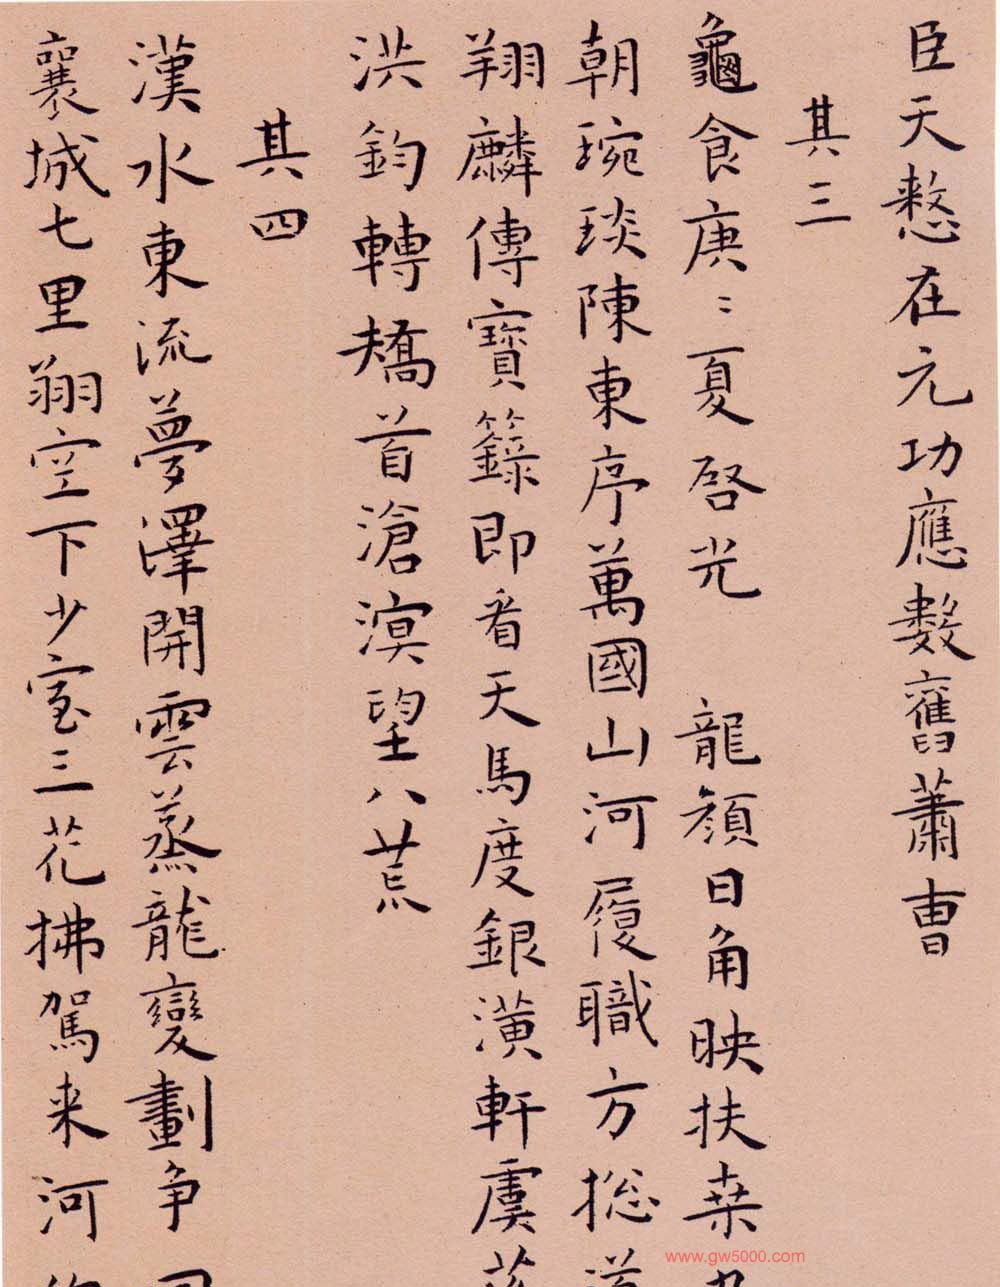 臣天憗在元功應數舊蕭曹
其三
龜食庚〻夏啓光 龍顏日角映扶桒
朝琬琰陳東序萬國山河履職方揔
翔麟傳寶籙即看天馬度銀潢軒虞
洪鈞轉矯首滄溟望八荒
其四
漢水東流夢澤開雲蒸龍變劃争
襄城七里翔空下少室三花拂駕来河
www.gw5000.com